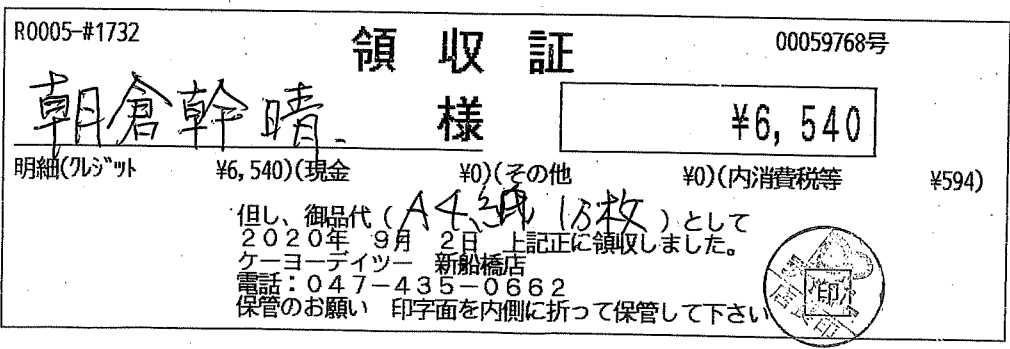 R0005-#1732
領収証
00059768号
朝倉幹晴 様
¥6,540
明細(クレジット ¥6,540)(現金 ¥0)(その他 ¥0)(内消費税等 ¥594)
但し、御品代(A4紙 13枚)として
2020年 9月 2日 上記正に領収しました。
ケーヨーデイツー 新船橋店
電話:047-435-0662
保管のお願い 印字面を内側に折って保管して下さい
印